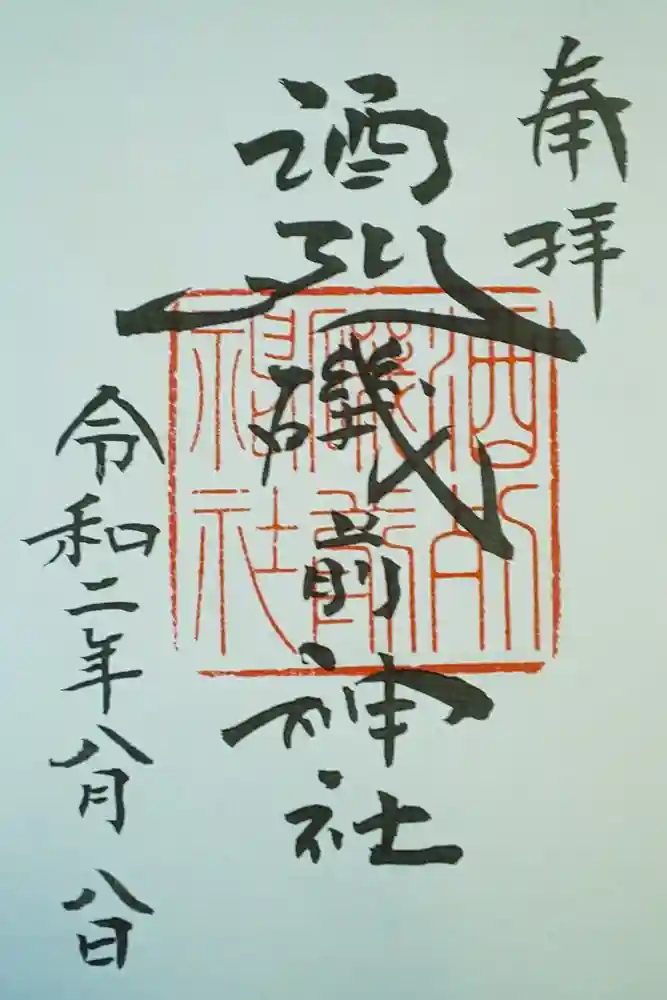 奉拝
酒列磯前神社
令和二年八月八日
酒列
磯前
神社